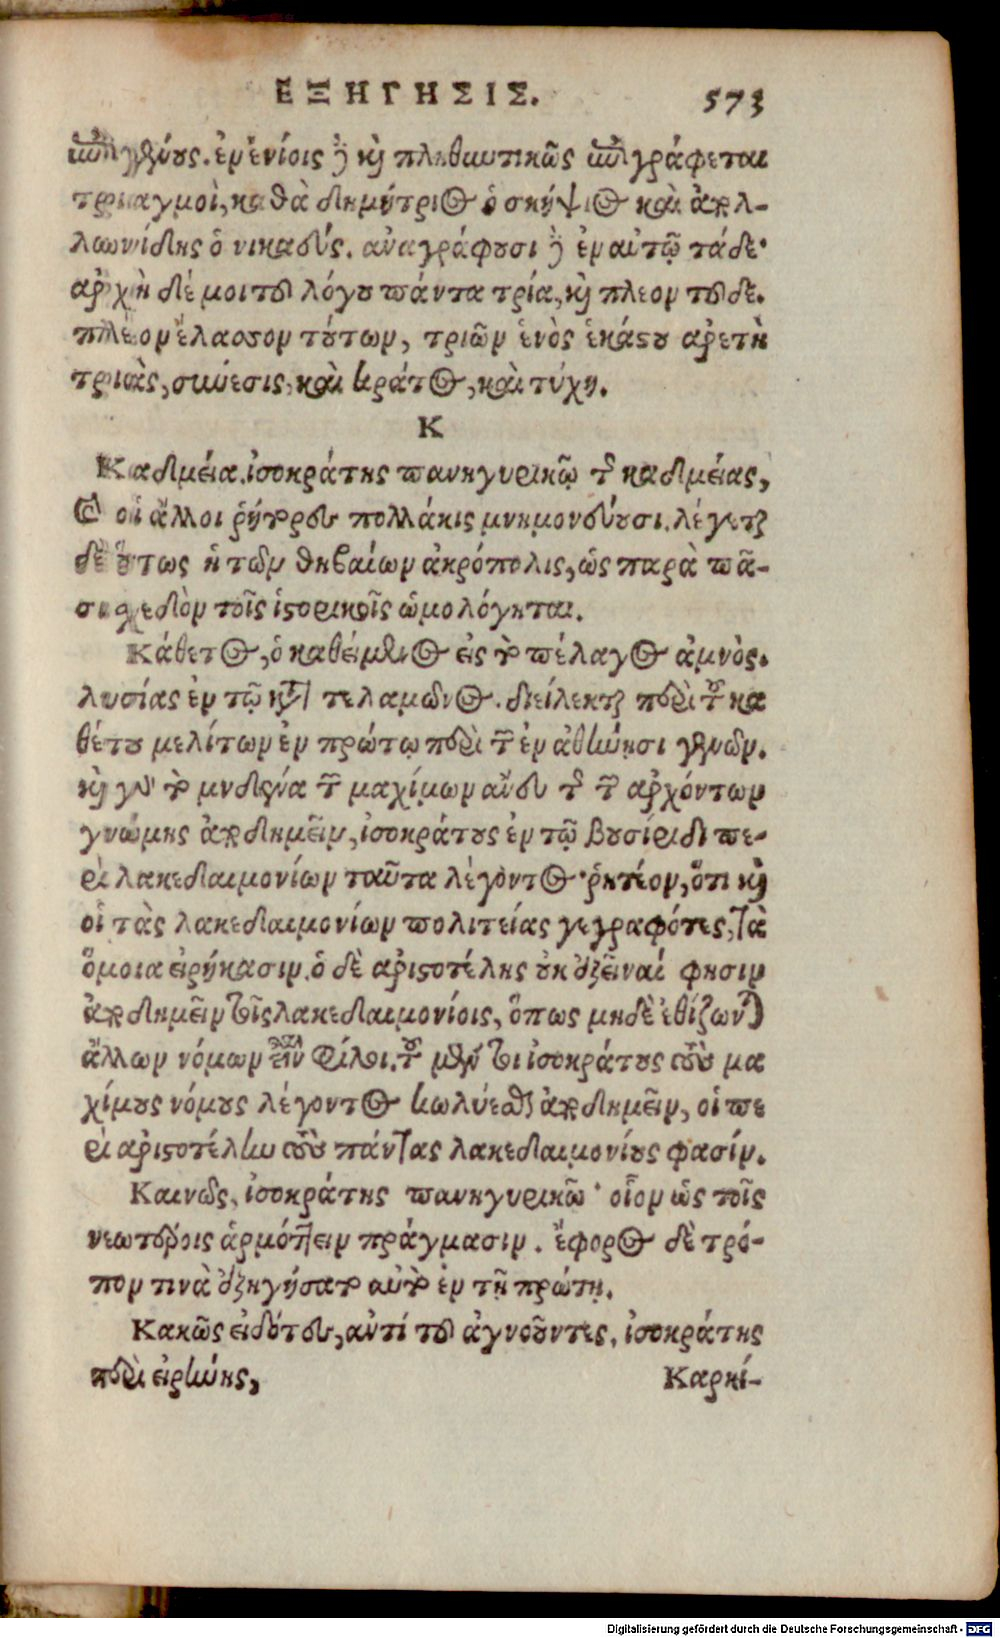 ΕΞΗΓΗΣΙΣ. 573
ἐν ἐνίοις δὲ καὶ πληθυντικῶς ἐπιγράφεται
τριαγμοὶ, καθὰ δημήτριος ὁ σκήψιος καὶ ἀπολ-
λωνίδης ὁ νικαεύς. ἀναγράφουσι δὲ ἐν αὐτῷ τάδε·
ἀρχὴ δέ μοι τοῦ λόγου πάντα τρία, καὶ πλεον τοῦδε.
πλέον ἔλασσον τούτων, τριῶν ἑνὸς ἑκάστου ἀρετὴ
τριὰς, σύνεσις, καὶ κράτος, καὶ τύχη.
Κ
Καδμεία. ἰσοκράτης πανηγυρικῷ τῆς καδμείας,
καὶ οἱ ἄλλοι ῥήτορες πολλάκις μνημονεύουσι. λέγεται
δὲ οὕτως ἡ τῶν θηβαίων ἀκρόπολις, ὡς παρὰ πᾶ-
σι σχεδὸν τοῖς ἱστορικοῖς ὡμολόγηται.
Κάθετος, ὁ καθέιμενος εἰς τὸ πέλαγος ἀμνὸς.
λυσίας ἐν τῷ κατὰ τελαμῶνος. διείλεκται περὶ τοῦ κα
θέτου μελίτων ἐν πρώτῳ περὶ τῶν ἐν ἀθήνησι γενῶν.
καὶ τὸ μηδένα τῶν μαχίμων ἄνευ τῆς τῶν ἀρχόντων
γνώμης ἀποδημεῖν, ἰσοκράτους ἐν τῷ βουσίριδι πε-
ρὶ λακεδαιμονίων ταῦτα λέγοντος· ῥητέον, ὅτι καὶ
οἱ τὰς λακεδαιμονίων πολιτείας γεγραφότες, τὰ
ὅμοια εἰρήκασιν. ὁ δὲ ἀριστοτέλης οὐκ ἐξεῖναί φησιν
ἀποδημεῖν τοῖς λακεδαιμονίοις, ὅπως μηδὲ ἐθίζωνται
ἄλλων νόμων εἶναι φίλοι. τοῦ μέντοι ἰσοκράτους τοὺς μα
χίμους νόμους λέγοντος κωλύεσθαι ἀποδημεῖν, οἱ πε
ρὶ ἀριστοτέλην τοὺς πάντας λακεδαιμονίους φασίν.
Καινῶς, ἰσοκράτης πανηγυρικῷ· οἷον ὡς τοῖς
νεωτέροις ἁρμόττειν πράγμασιν. ἔφορος δὲ τρό-
πον τινὰ ἐξηγήσατο αὐτὸ ἐν τῇ πρώτῃ.
Κακῶς εἰδότες, ἀντί τοῦ ἀγνοοῦντες, ἰσοκράτης
περὶ εἰρήνης, Καρκί-
Digitalisierung gefördert durch die Deutsche Forschungsgemeinschaft - DFG